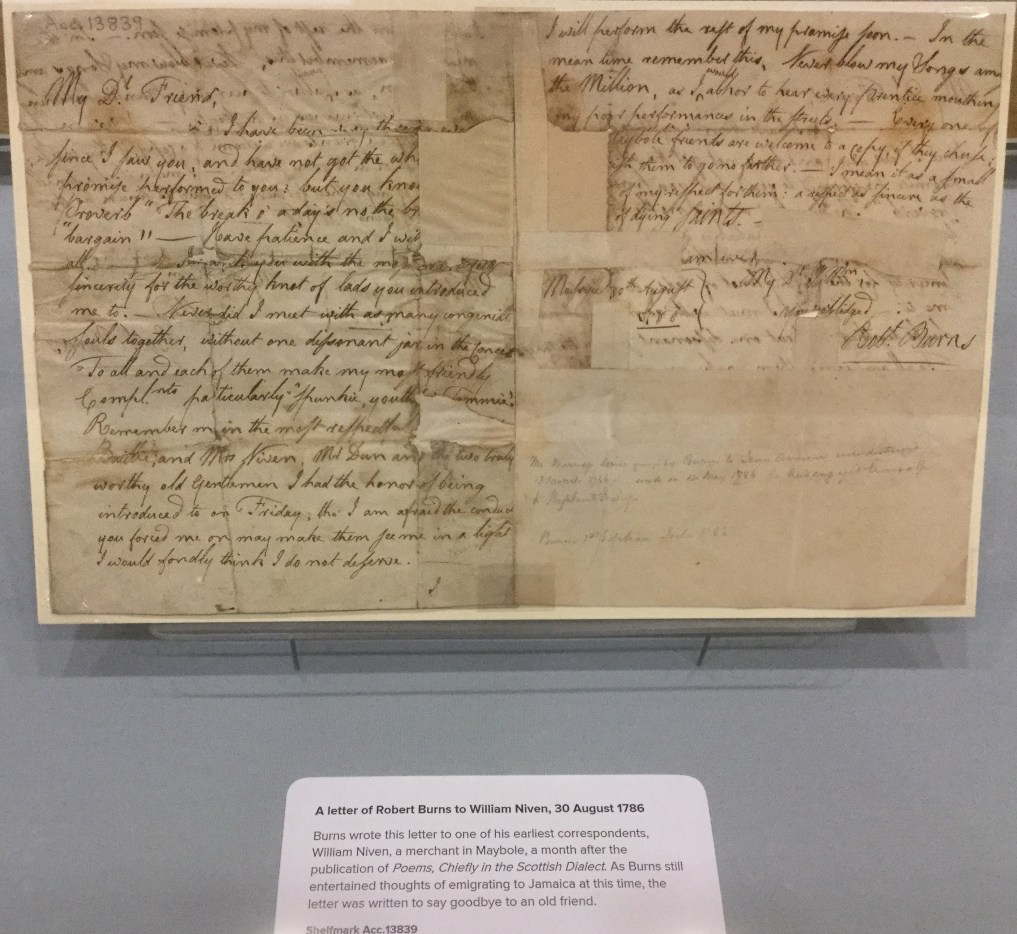 Acc.13839
My Dr. Friend,
I have been
since I saw you, and have not got the wh
promise performed to you: but you know
Proverb "The break o' a day's no the br
"bargain" — Have patience and I will
all. you with the
sincerity for the worthy knot of lads you introduced
me to. — Never did I meet with as many congenial
souls together, without one dissonant jar in the Concer
To all and each of them make my most friendly
Complnts particularly "Spunkie, youth Tammie".
Remember me in the most respectful
and Mrs Niven, Mr Dun and the two truly
worthy old Gentlemen I had the honor of being
introduced to on Friday, tho' I am afraid the conduct
you forced me on may make them see me in a light
I would fondly think I do not deserve.
I
I will perform the rest of my promise soon. — In the
mean time remember this, Never blow my Songs am
the Million, as I would abhor to hear every Prentice mouthing
my poor performances in the streets. — Every one of
Maybole friends are welcome to a copy, if they chuse;
them to go no farther. — I mean it as a small
of my respect for them: a respect as sincere as the
of dying Saints. —
I am ever,
Maybole 30th August My Dr. Willm
1786 Your obliged
Robt. Burns
A letter of Robert Burns to William Niven, 30 August 1786
Burns wrote this letter to one of his earliest correspondents,
William Niven, a merchant in Maybole, a month after the
publication of Poems, Chiefly in the Scottish Dialect. As Burns still
entertained thoughts of emigrating to Jamaica at this time, the
letter was written to say goodbye to an old friend.
Shelfmark Acc.13839